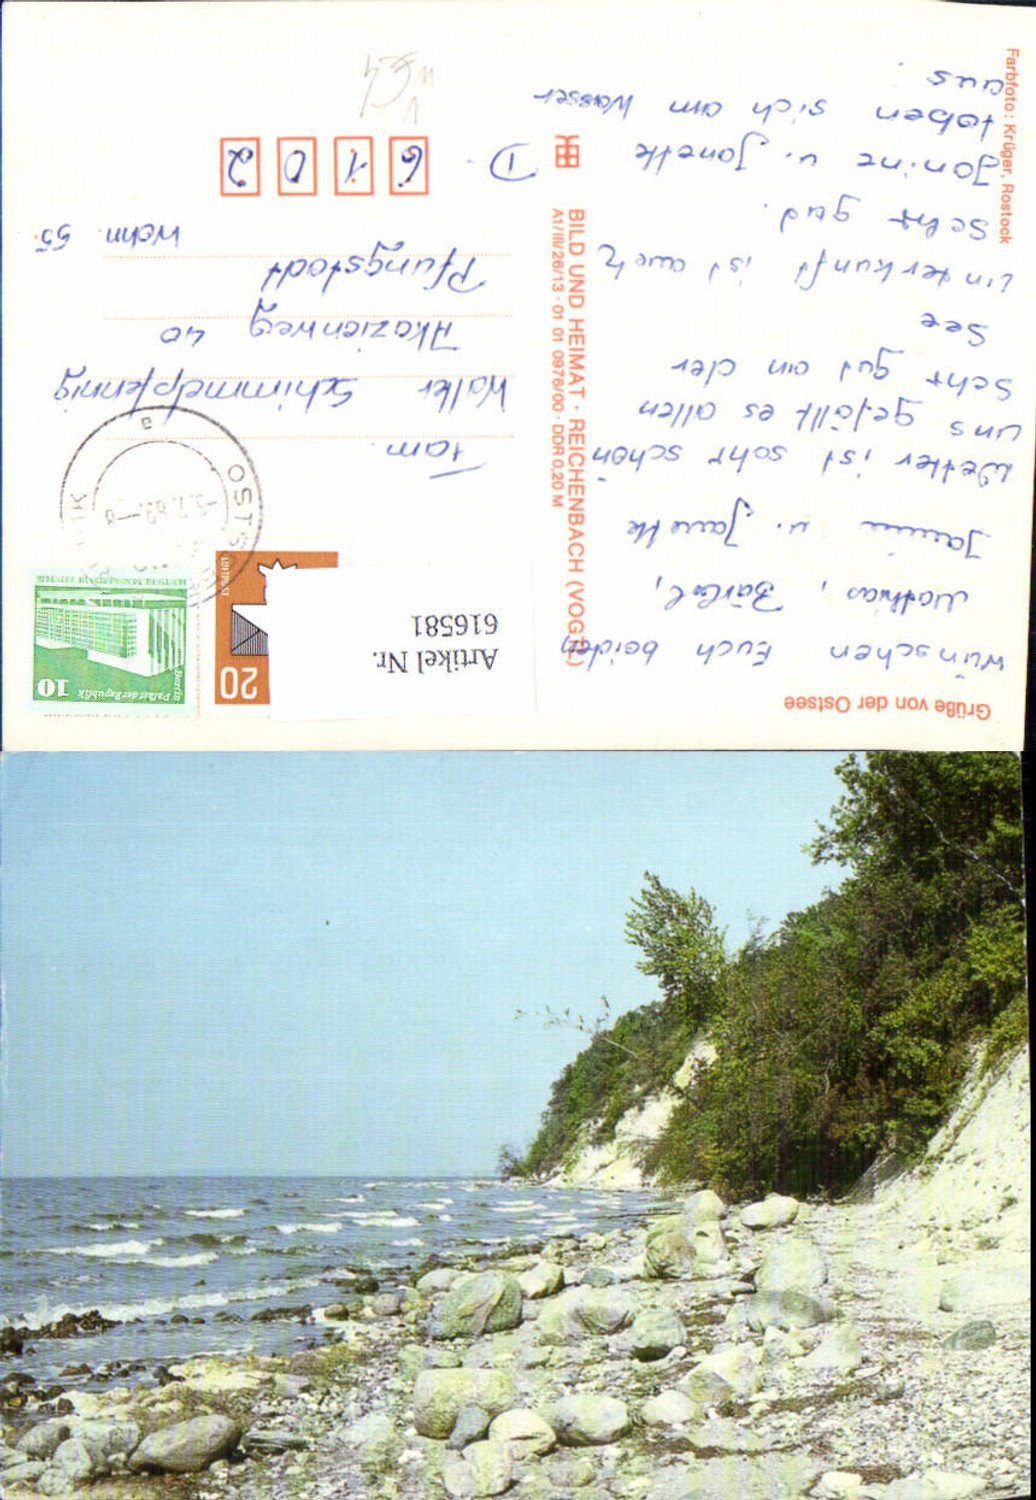 Grüße von der Ostsee
wünschen Euch beiden
Mathias, Bärbel,
Janine u. Janette
Wetter ist sehr schön
uns gefällt es allen
sehr gut an der
See
Unterkunft ist auch
sehr gud.
Janine u. Janette
toben sich am Wasser
aus.
BILD UND HEIMAT · REICHENBACH (VOGTL)
A1/III/26/13 · 01 01 0976/00 · DDR 0,20 M
Farbfoto: Krüger, Rostock
Artikel Nr.
616581
20
LUFTPOST
10
Palast der Republik
Berlin
DEUTSCHE DEMOKRATISCHE REPUBLIK
OSTS
a
Fam.
Walter Schimmelpfennig
Akazienweg 40
Pfungstadt
Wohn. 55.
D - 6102